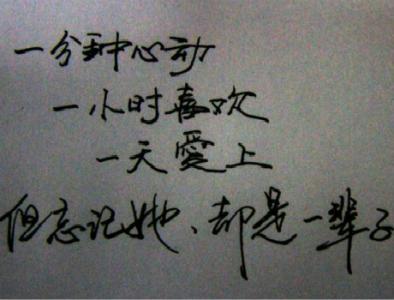 一分钟心动
一小时喜欢
一天愛上
但忘记她、却是一辈子